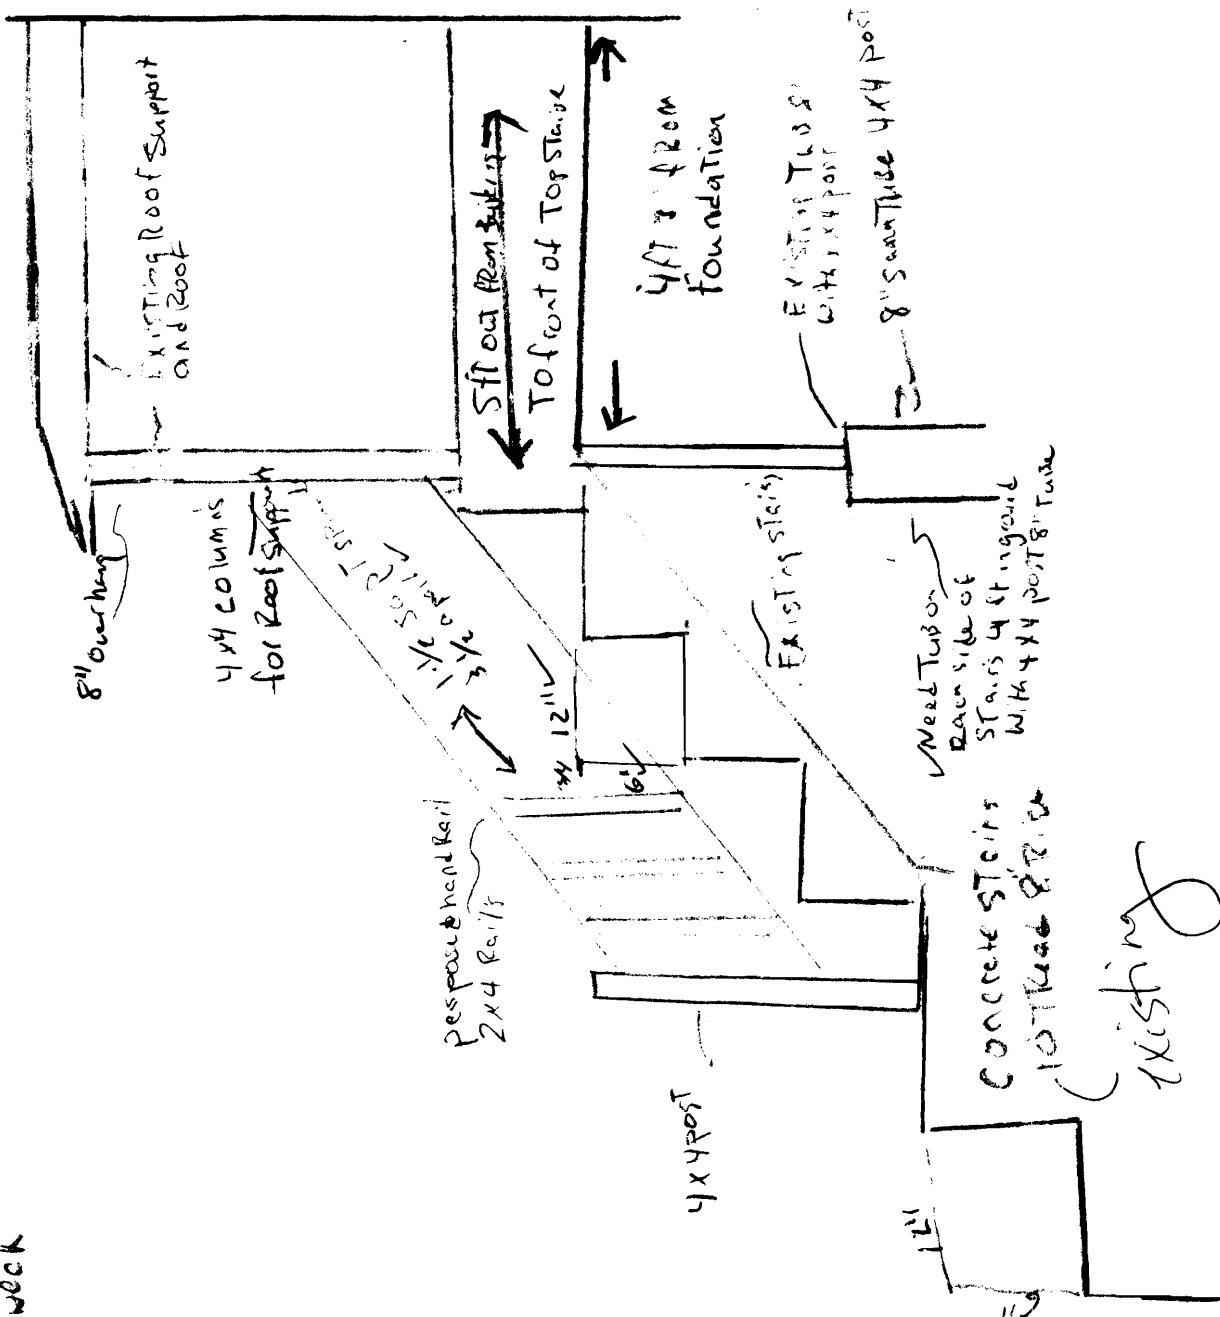 Existing Roof Support
and Roof
8" overhang
4x4 columns
for Roof Support
5ft out from
To front of Top Staire
4ft from
foundation
Existing Tub 8"
with 4x4 post
8" Sauna Tube 4x4 post
1 1/2
3 1/2
12"
3/4
6"
Existing stairs
Need Tub on
Each side of
Stairs 4 ft inground
With 4x4 post 8" Tube
hand Rail
2x4 Rails
4x4 post
Concrete stairs
10 Tread 8" Rise
Existing
12"